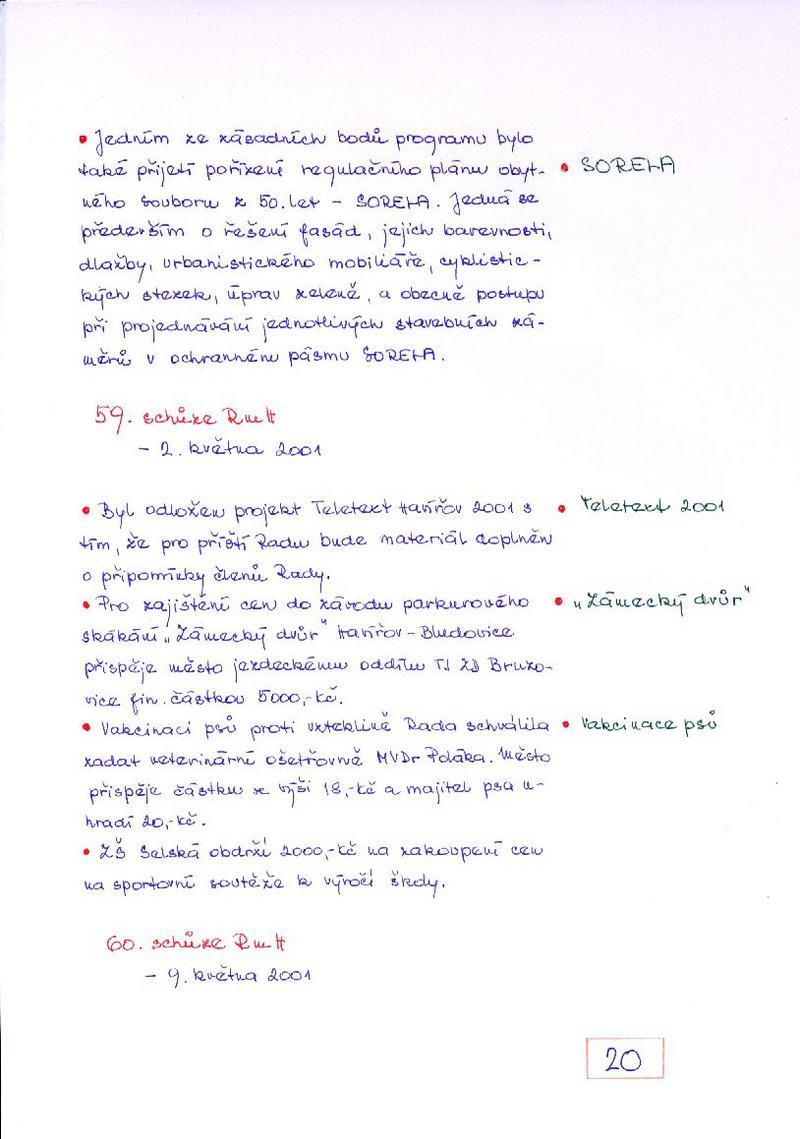 • Jedním ze zásadních bodů programu bylo
také přijetí pořízení regulačního plánu obyt-
ného souboru z 50. let – SORELA. Jedná se
především o řešení fasád, jejich barevnosti,
dlažby, urbanistického mobiliáře, cyklistic-
kých stezek, úprav zeleně, a obecně postupu
při projednávání jednotlivých stavebních zá-
měrů v ochranném pásmu SORELA.
• SORELA
59. schůze RmH
– 2. května 2001
• Byl odložen projekt Teletext Havířov 2001 s
tím, že pro příští Radu bude materiál doplněn
o připomínky členů Rady.
• Teletext 2001
• Pro zajištění cen do závodu parkurového
skákání „Zámecký dvůr" Havířov – Bludovice
přispěje město jezdeckému oddílu TJ ZD Bruzo-
vice fin. částkou 5000,-Kč.
• „Zámecký dvůr"
• Vakcinaci psů proti vzteklině Rada schválila
zadat veterinární ošetřovně MVDr Poláka. Město
přispěje částku ve výši 18,-Kč a majitel psa u-
hradí 20,-Kč.
• Vakcinace psů
• ZŠ Selská obdrží 2000,-Kč na zakoupení cen
na sportovní soutěže k výročí školy.
60. schůze RmH
– 9. května 2001
20